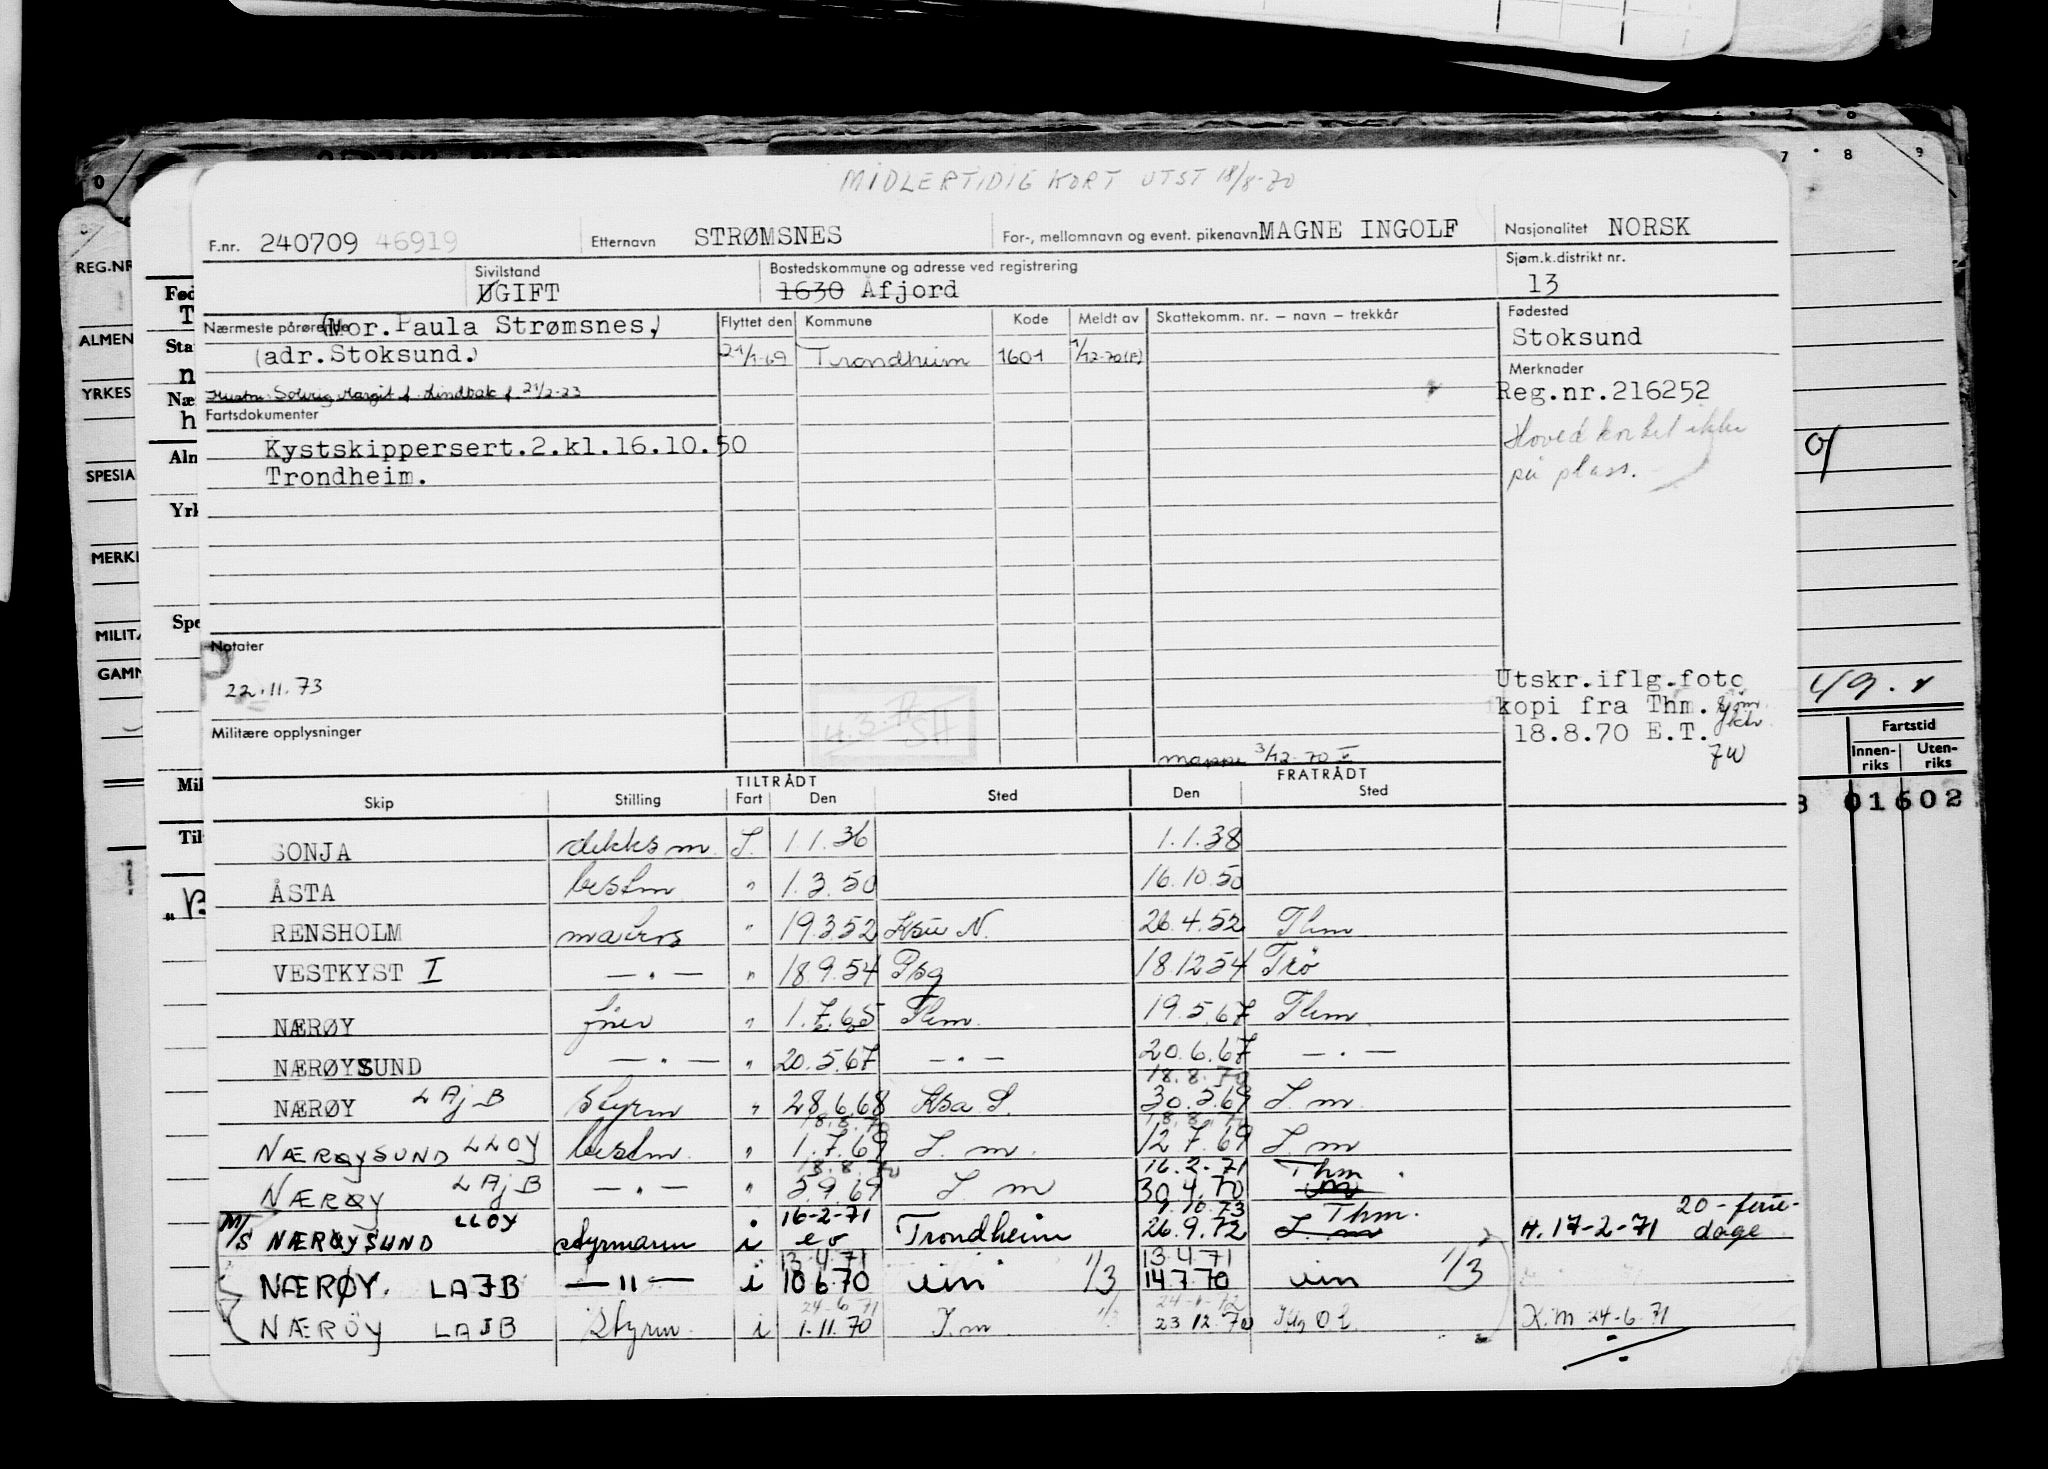 MIDLERTIDIG KORT UTST 18/8-70
F.nr. 240709 46919 Etternavn STRØMSNES For-, mellomnavn og event. pikenavn MAGNE INGOLF Nasjonalitet NORSK
Sivilstand Bostedskommune og adresse ved registrering Sjøm.k.distrikt nr.
UGIFT 1630 Åfjord 13
Nærmeste pårørende (Mor. Paula Strømsnes, Flyttet den Kommune Kode Meldt av Skattekomm. nr. – navn – trekkår Fødested
(adr. Stoksund.) 21/1-69 Trondheim 1601 1/12-70 (F) Stoksund
Merknader
Hustru Solvig Margit f. Lindbak f. 21/2-23 Reg.nr.216252
Fartsdokumenter
Hovedkortet ikke
Kystskippersert.2.kl.16.10.50
Trondheim. på plass.
Notater
22.11.73
Utskr.iflg.foto
kopi fra Thm.
18.8.70 E.T.
Militære opplysninger
mappe 3/12-70
TILTRÅDT FRATRÅDT
Skip Stilling Fart Den Sted Den Sted
SONJA dekksm. I. 1.1.36 1.1.38
ÅSTA bestm " 1.3.50 16.10.50
RENSHOLM matros " 19.3.52 Ksu N. 26.4.52 Thm
VESTKYST I — " — " 18.9.54 Psg 18.12.54 Trö
NÆRØY " 1.7.65 Thm. 19.5.67 Thm.
NÆRØYSUND — " — " 20.5.67 — " — 20.6.67 — " —
18.8.70
NÆRØY LAJB Styrm " 28.6.68 Ksa S. 30.5.69 I. m.
18.8.70
NÆRØYSUND LLOY bestm. " 1.7.69 I. m. 12.7.69 I. m
18.8.70 16.2.71 Thm
NÆRØY LAJB — " — " 5.9.69 I m 30.4.70
16-2-71 9.10.73 Thm. 20-ferie-
M/S NÆRØYSUND LLOY styrmann i Trondheim 26.9.72 I. m H. 17-2-71 dage
13.4.71 13.4.71
NÆRØY. LAJB — " — i 10.6.70 um 1/3 14.7.70 um 1/3
24.6.71
NÆRØY LAJB Styrm. i 1.11.70 I.m. 23 12 70 K.m 24-6.71
REG.NR
ALMEN
YRKES
SPESIA
MERK
MILIT
GAMN
Fartstid
Innen-riks Uten-riks
01602